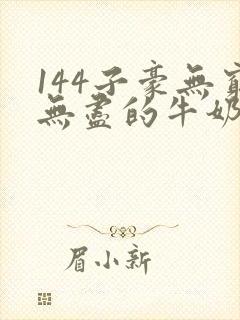 144子豪無窮
無盡的牛奶
眉小新